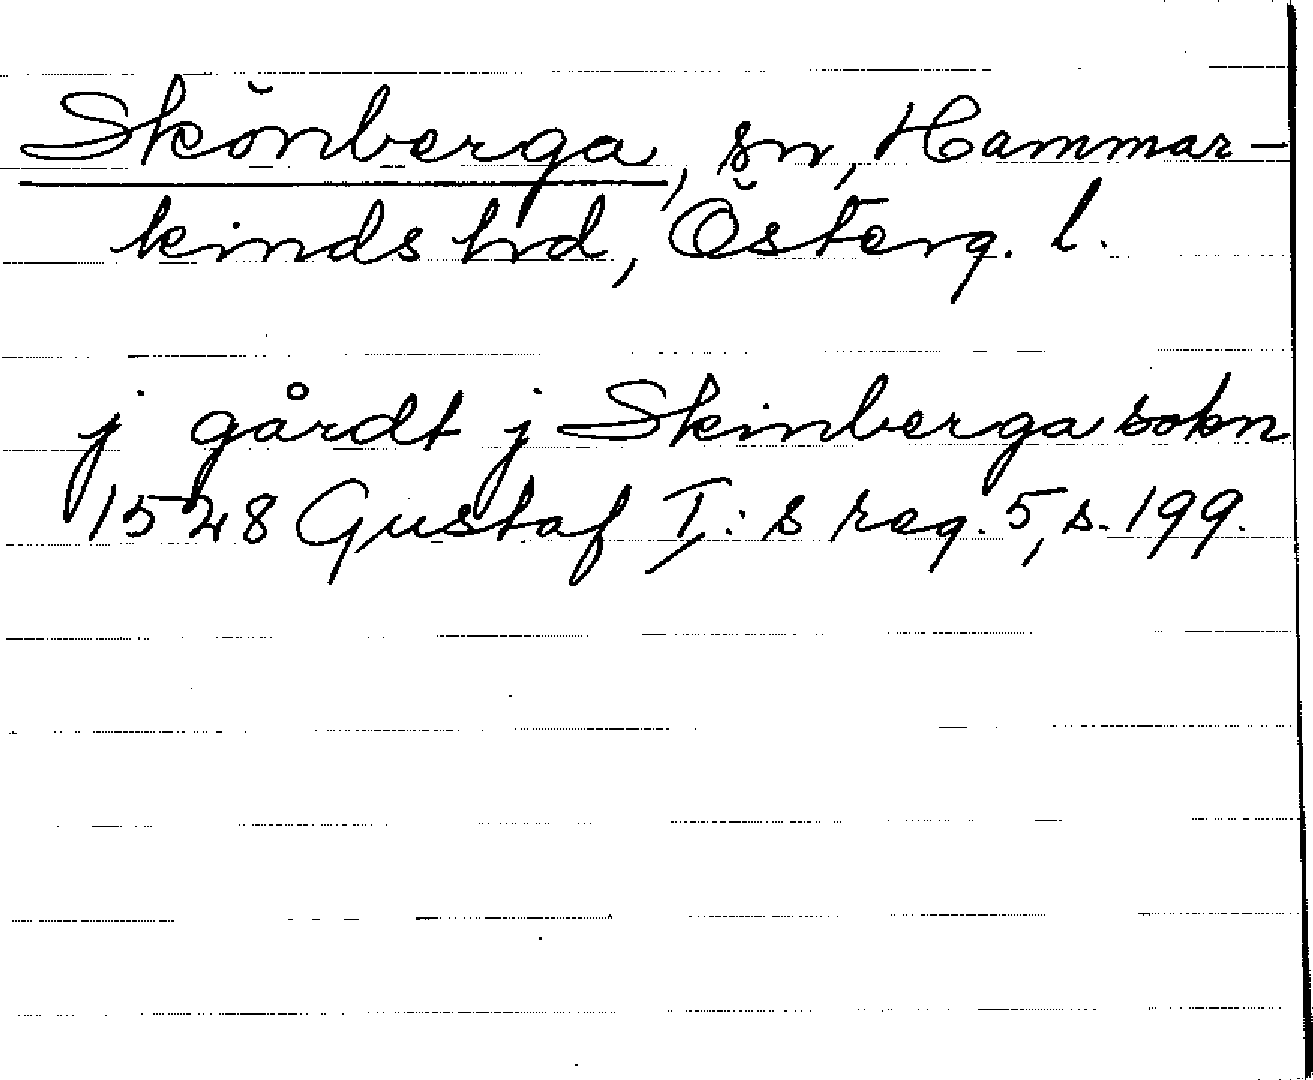 Skönberga, sn, Hammar-
kinds hd, Österg. l.
j gårdt j Skinberga sokn
1528 Gustaf I:s reg. 5, s. 199.